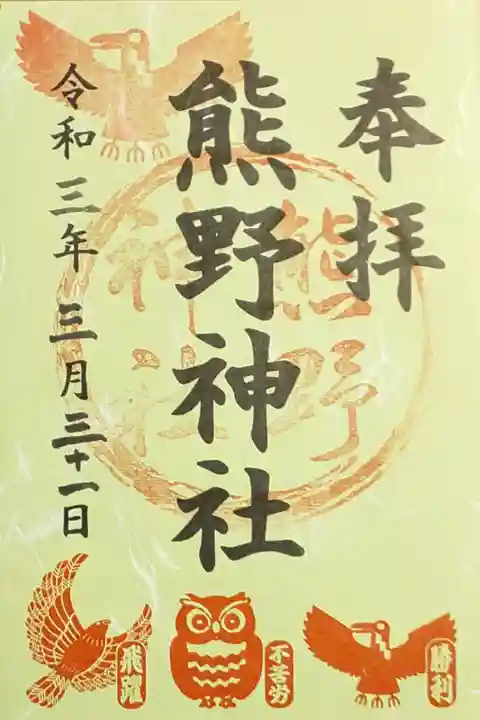 奉拝
熊野神社
令和三年三月三十一日
熊野
神社
飛躍
不苦労
勝利